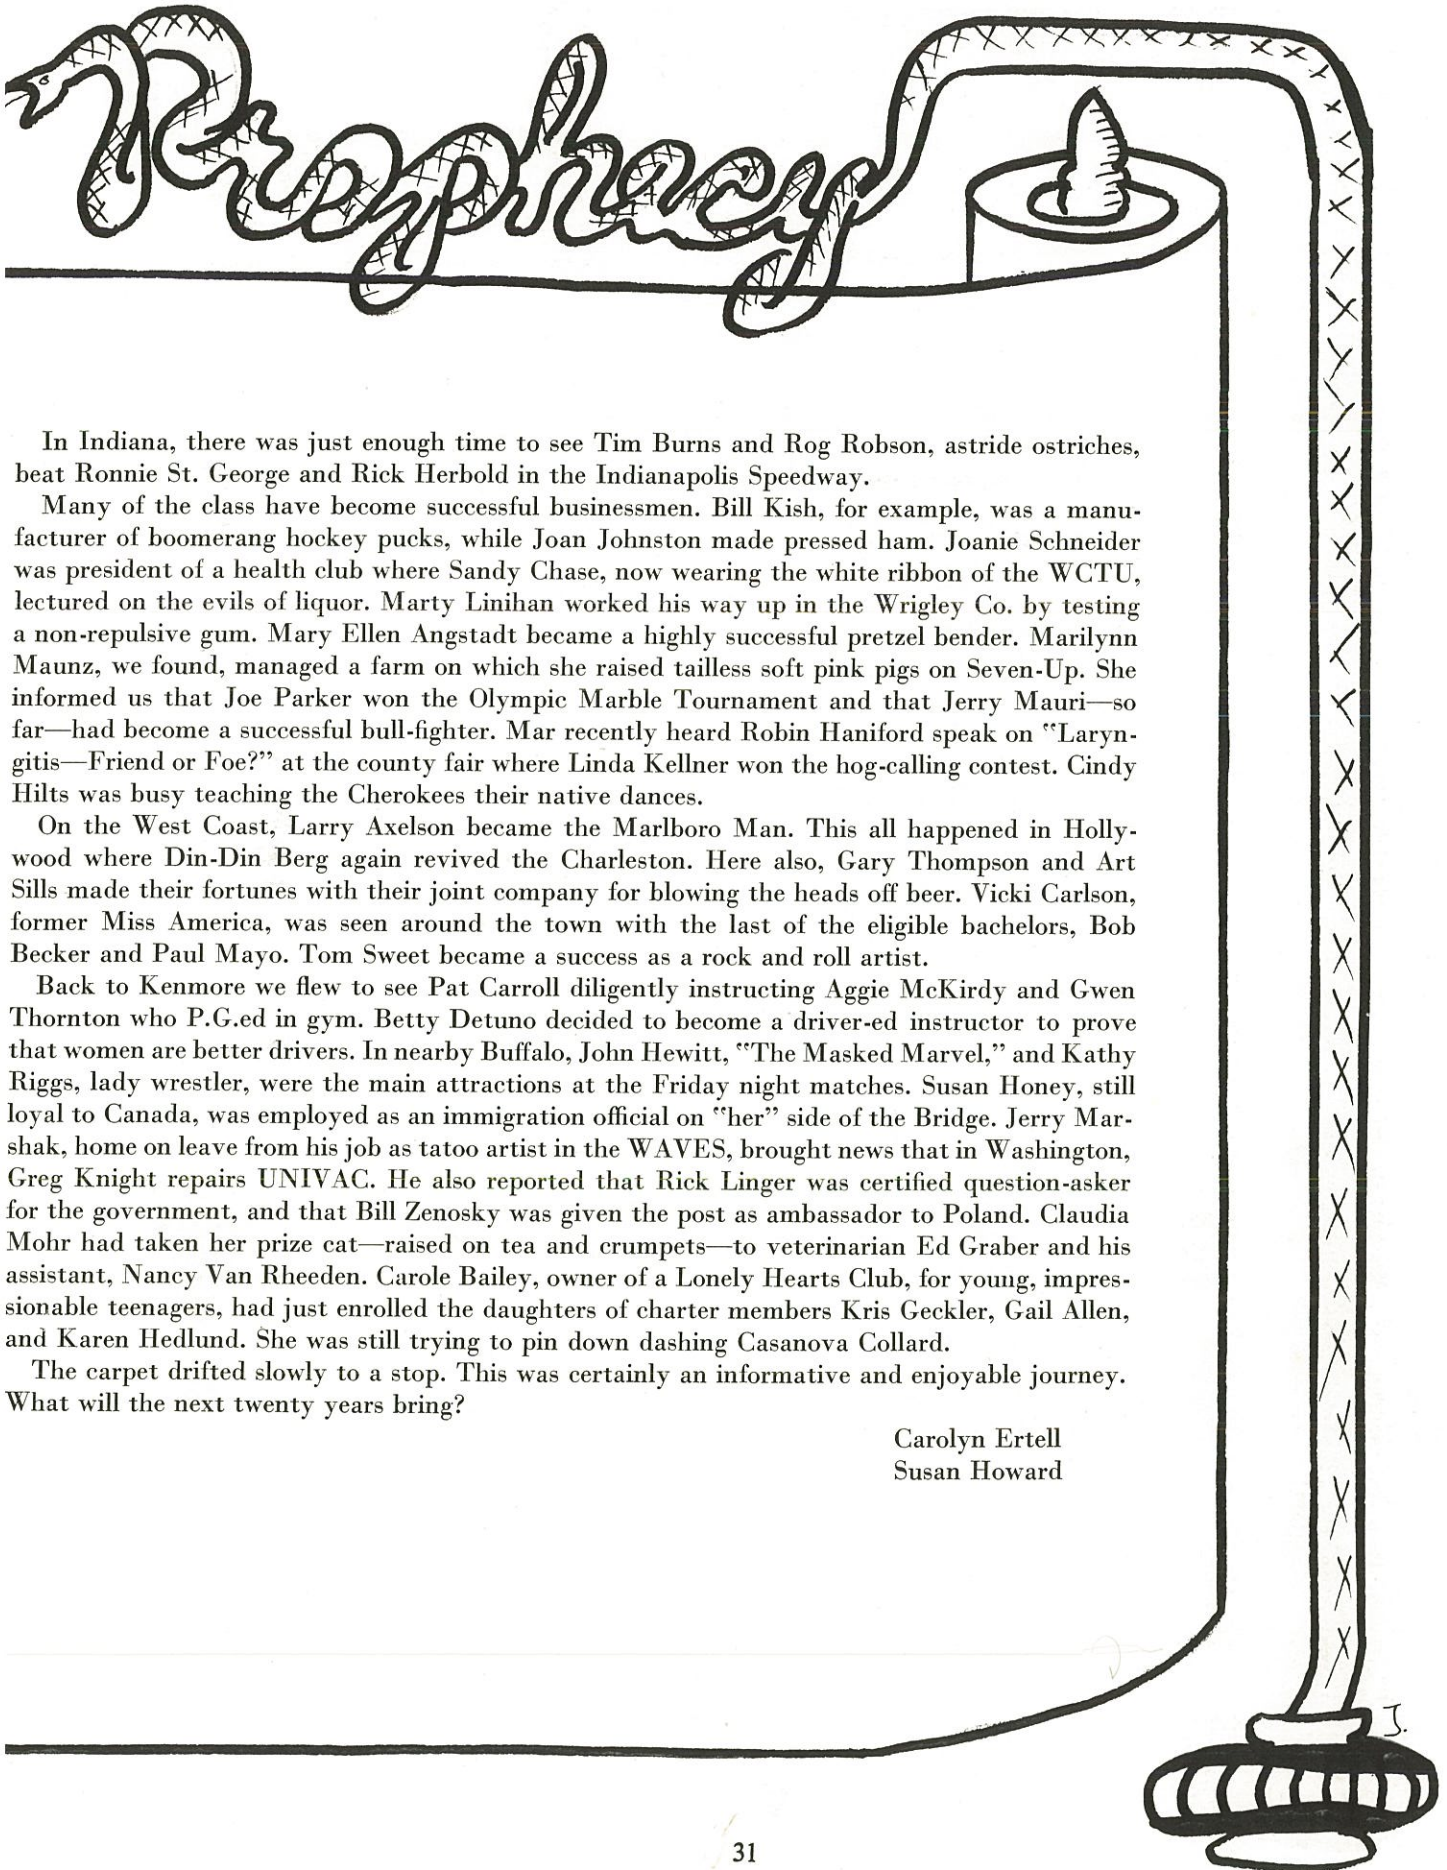 Prophacy
In Indiana, there was just enough time to see Tim Burns and Rog Robson, astride ostriches,
beat Ronnie St. George and Rick Herbold in the Indianapolis Speedway.
Many of the class have become successful businessmen. Bill Kish, for example, was a manu-
facturer of boomerang hockey pucks, while Joan Johnston made pressed ham. Joanie Schneider
was president of a health club where Sandy Chase, now wearing the white ribbon of the WCTU,
lectured on the evils of liquor. Marty Linihan worked his way up in the Wrigley Co. by testing
a non-repulsive gum. Mary Ellen Angstadt became a highly successful pretzel bender. Marilynn
Maunz, we found, managed a farm on which she raised tailless soft pink pigs on Seven-Up. She
informed us that Joe Parker won the Olympic Marble Tournament and that Jerry Mauri—so
far—had become a successful bull-fighter. Mar recently heard Robin Haniford speak on "Laryn-
gitis—Friend or Foe?" at the county fair where Linda Kellner won the hog-calling contest. Cindy
Hilts was busy teaching the Cherokees their native dances.
On the West Coast, Larry Axelson became the Marlboro Man. This all happened in Holly-
wood where Din-Din Berg again revived the Charleston. Here also, Gary Thompson and Art
Sills made their fortunes with their joint company for blowing the heads off beer. Vicki Carlson,
former Miss America, was seen around the town with the last of the eligible bachelors, Bob
Becker and Paul Mayo. Tom Sweet became a success as a rock and roll artist.
Back to Kenmore we flew to see Pat Carroll diligently instructing Aggie McKirdy and Gwen
Thornton who P.G.ed in gym. Betty Detuno decided to become a driver-ed instructor to prove
that women are better drivers. In nearby Buffalo, John Hewitt, "The Masked Marvel," and Kathy
Riggs, lady wrestler, were the main attractions at the Friday night matches. Susan Honey, still
loyal to Canada, was employed as an immigration official on "her" side of the Bridge. Jerry Mar-
shak, home on leave from his job as tatoo artist in the WAVES, brought news that in Washington,
Greg Knight repairs UNIVAC. He also reported that Rick Linger was certified question-asker
for the government, and that Bill Zenosky was given the post as ambassador to Poland. Claudia
Mohr had taken her prize cat—raised on tea and crumpets—to veterinarian Ed Graber and his
assistant, Nancy Van Rheeden. Carole Bailey, owner of a Lonely Hearts Club, for young, impres-
sionable teenagers, had just enrolled the daughters of charter members Kris Geckler, Gail Allen,
and Karen Hedlund. She was still trying to pin down dashing Casanova Collard.
The carpet drifted slowly to a stop. This was certainly an informative and enjoyable journey.
What will the next twenty years bring?
Carolyn Ertell
Susan Howard
J.
31